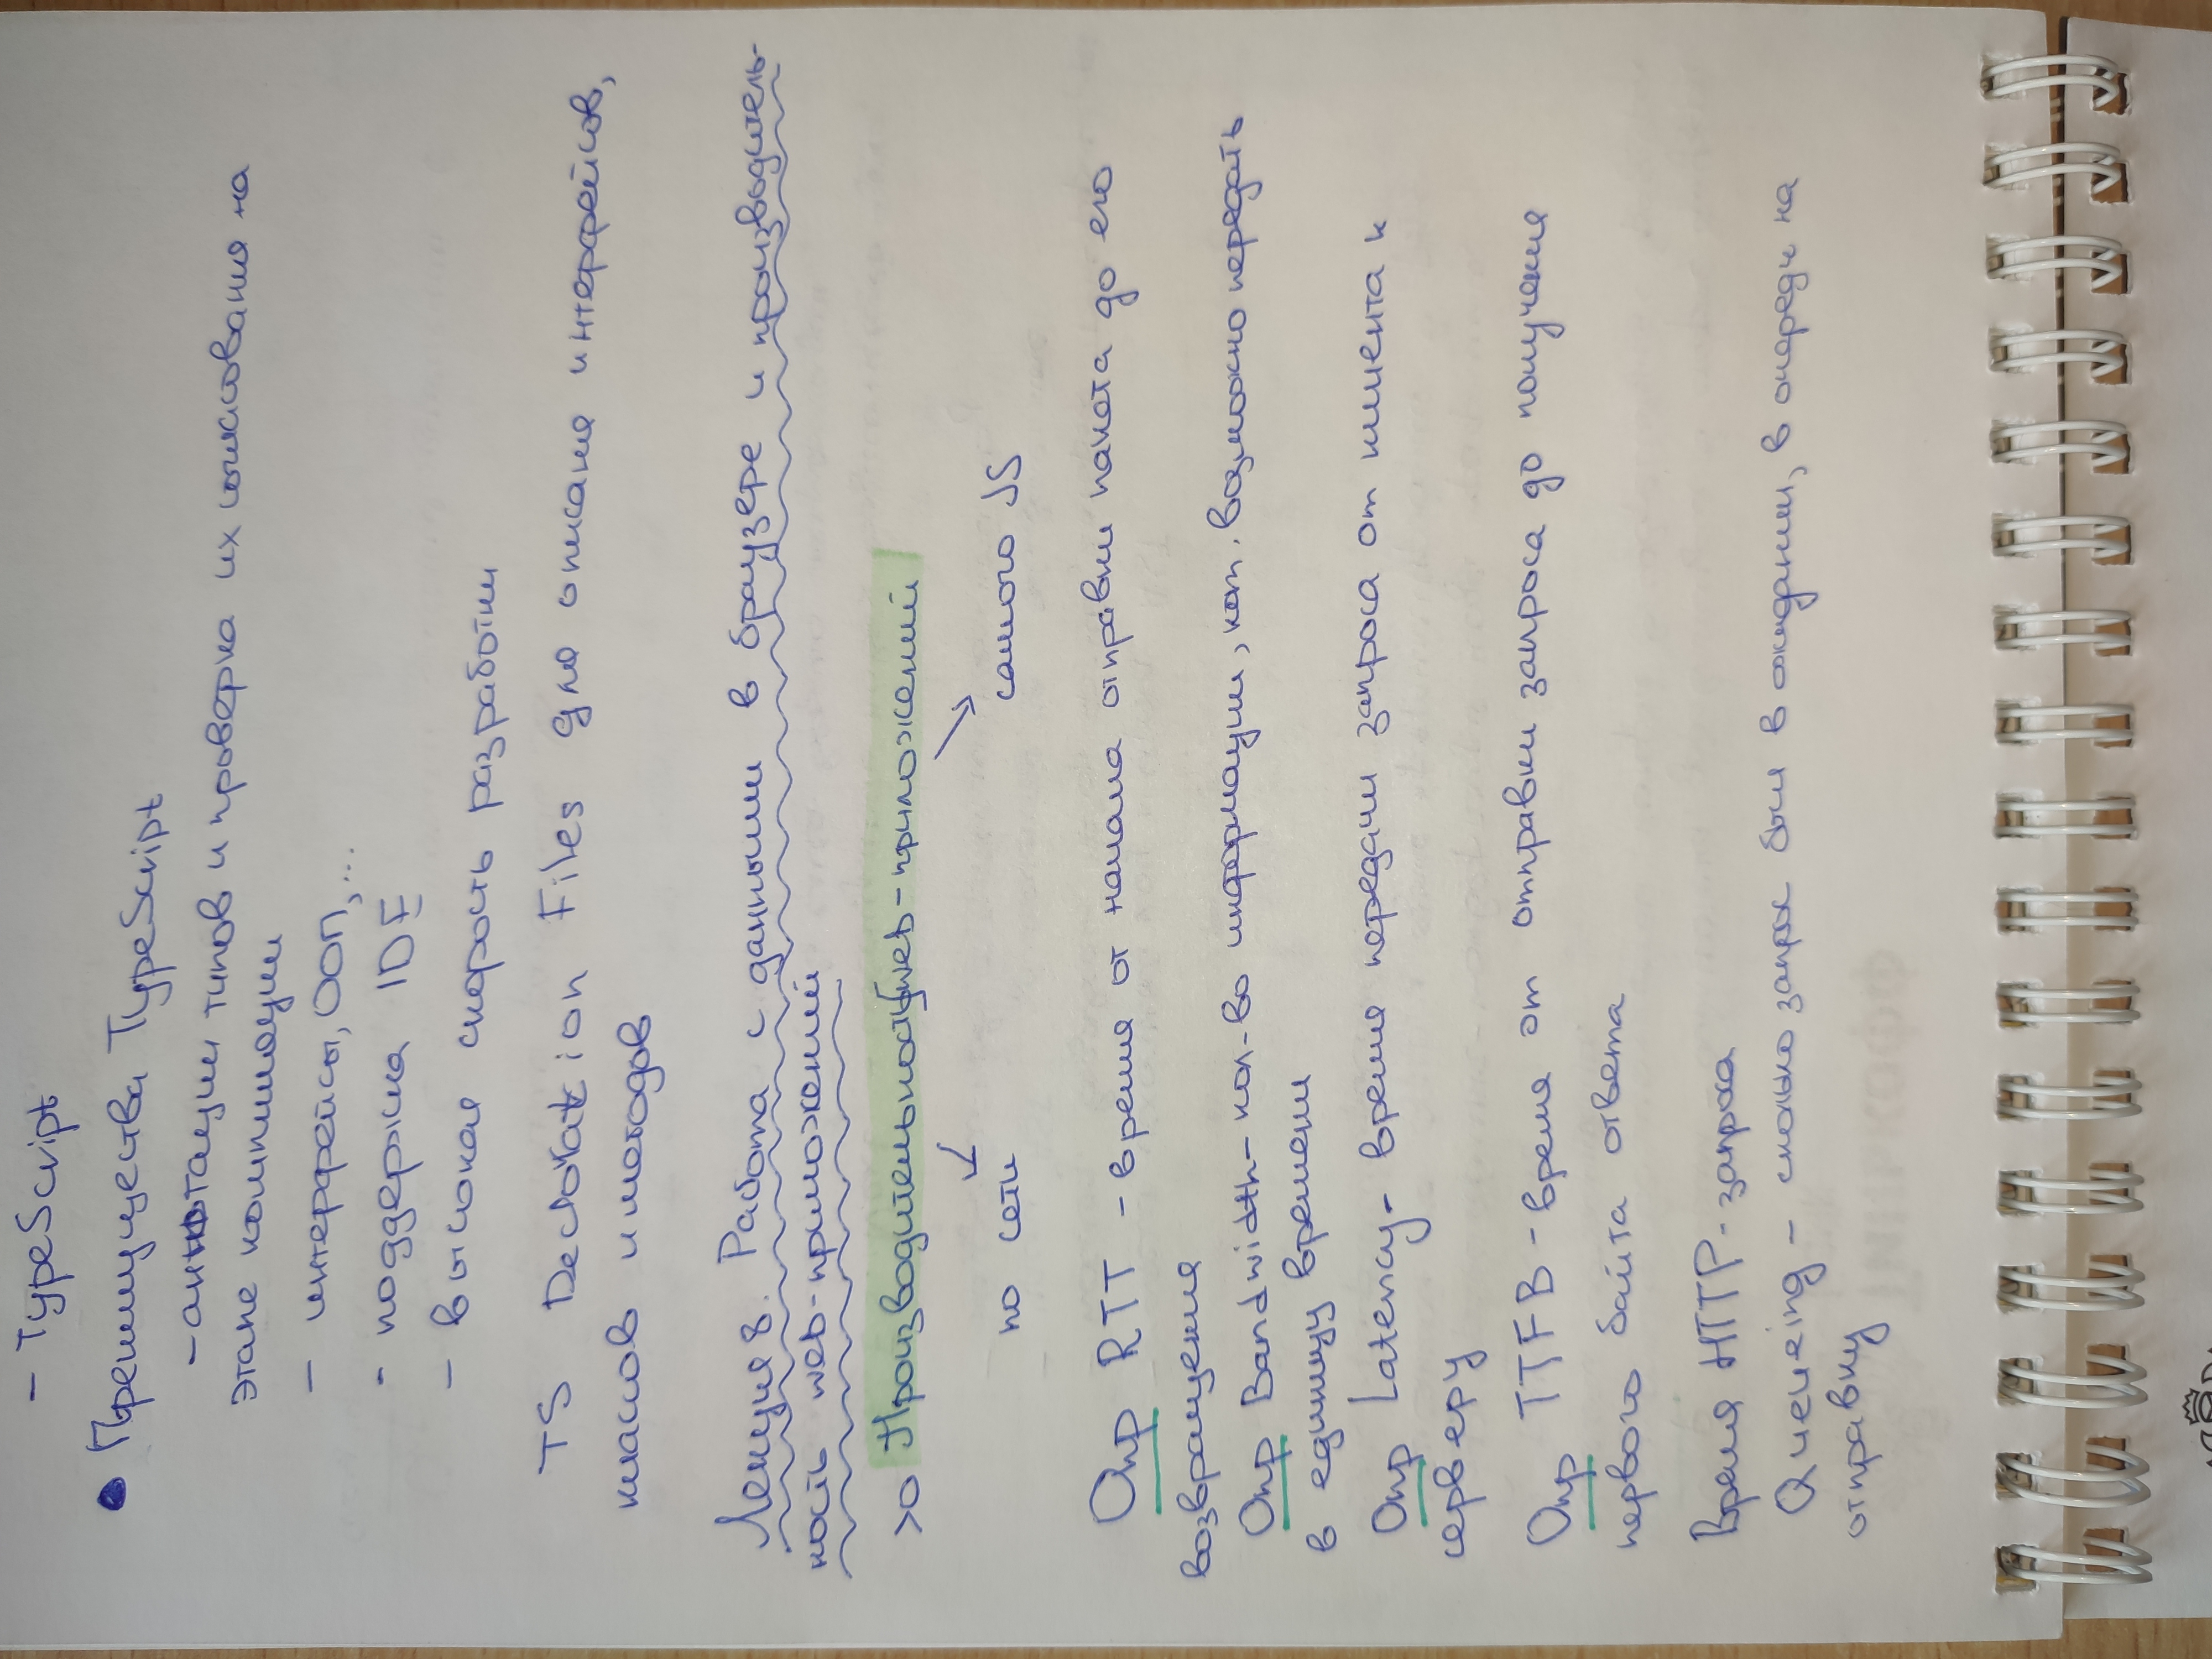 - TypeScript
● Преимущества TypeScript
- аннотации типов и проверка их согласования на
этапе компиляции
- интерфейсы, ООП, ...
- поддержка IDE
- высокая скорость разработки
TS Declaration Files для описания интерфейсов,
классов и методов
Лекция 8. Работа с данными в браузере и производитель-
ность web-приложений
>o Производительность web-приложений
↙ ↘
по сети самого JS
Опр RTT - время от начала отправки пакета до его
возвращения
Опр Bandwidth - кол-во информации, кот. возможно передать
в единицу времени
Опр Latency - время передачи запроса от клиента к
серверу
Опр TTFB - время от отправки запроса до получения
первого байта ответа
Время HTTP-запроса
Queueing - сколько запрос был в ожидании, в очереди на
отправку